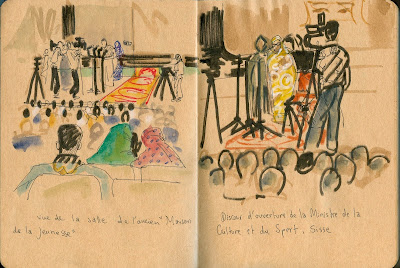 vue de la salle de l'ancien "Maison
de la jeunesse"
Discour d'ouverture de la Ministre de la
Culture et du Sport, Sisse